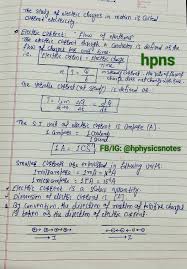 The study of electric charges in motion is called
current electricity.
Electric Current: "Flow of electrons"
The electric current through a conductor is defined as the
flow of charge per unit time.
Electric Current = Electric charge
time
hpns
The S.I unit of electric current is Ampere (A).
1 Ampere = 1 Coulomb
1 second
1A = 1CS⁻¹
FB/IG: @hphysicsnotes
Smaller currents are expressed in following units:
Electric Current is a scalar quantity.
Dimension of electric current is [A]
By convention, the direction of motion of positive charges
is taken as the direction of electric current.